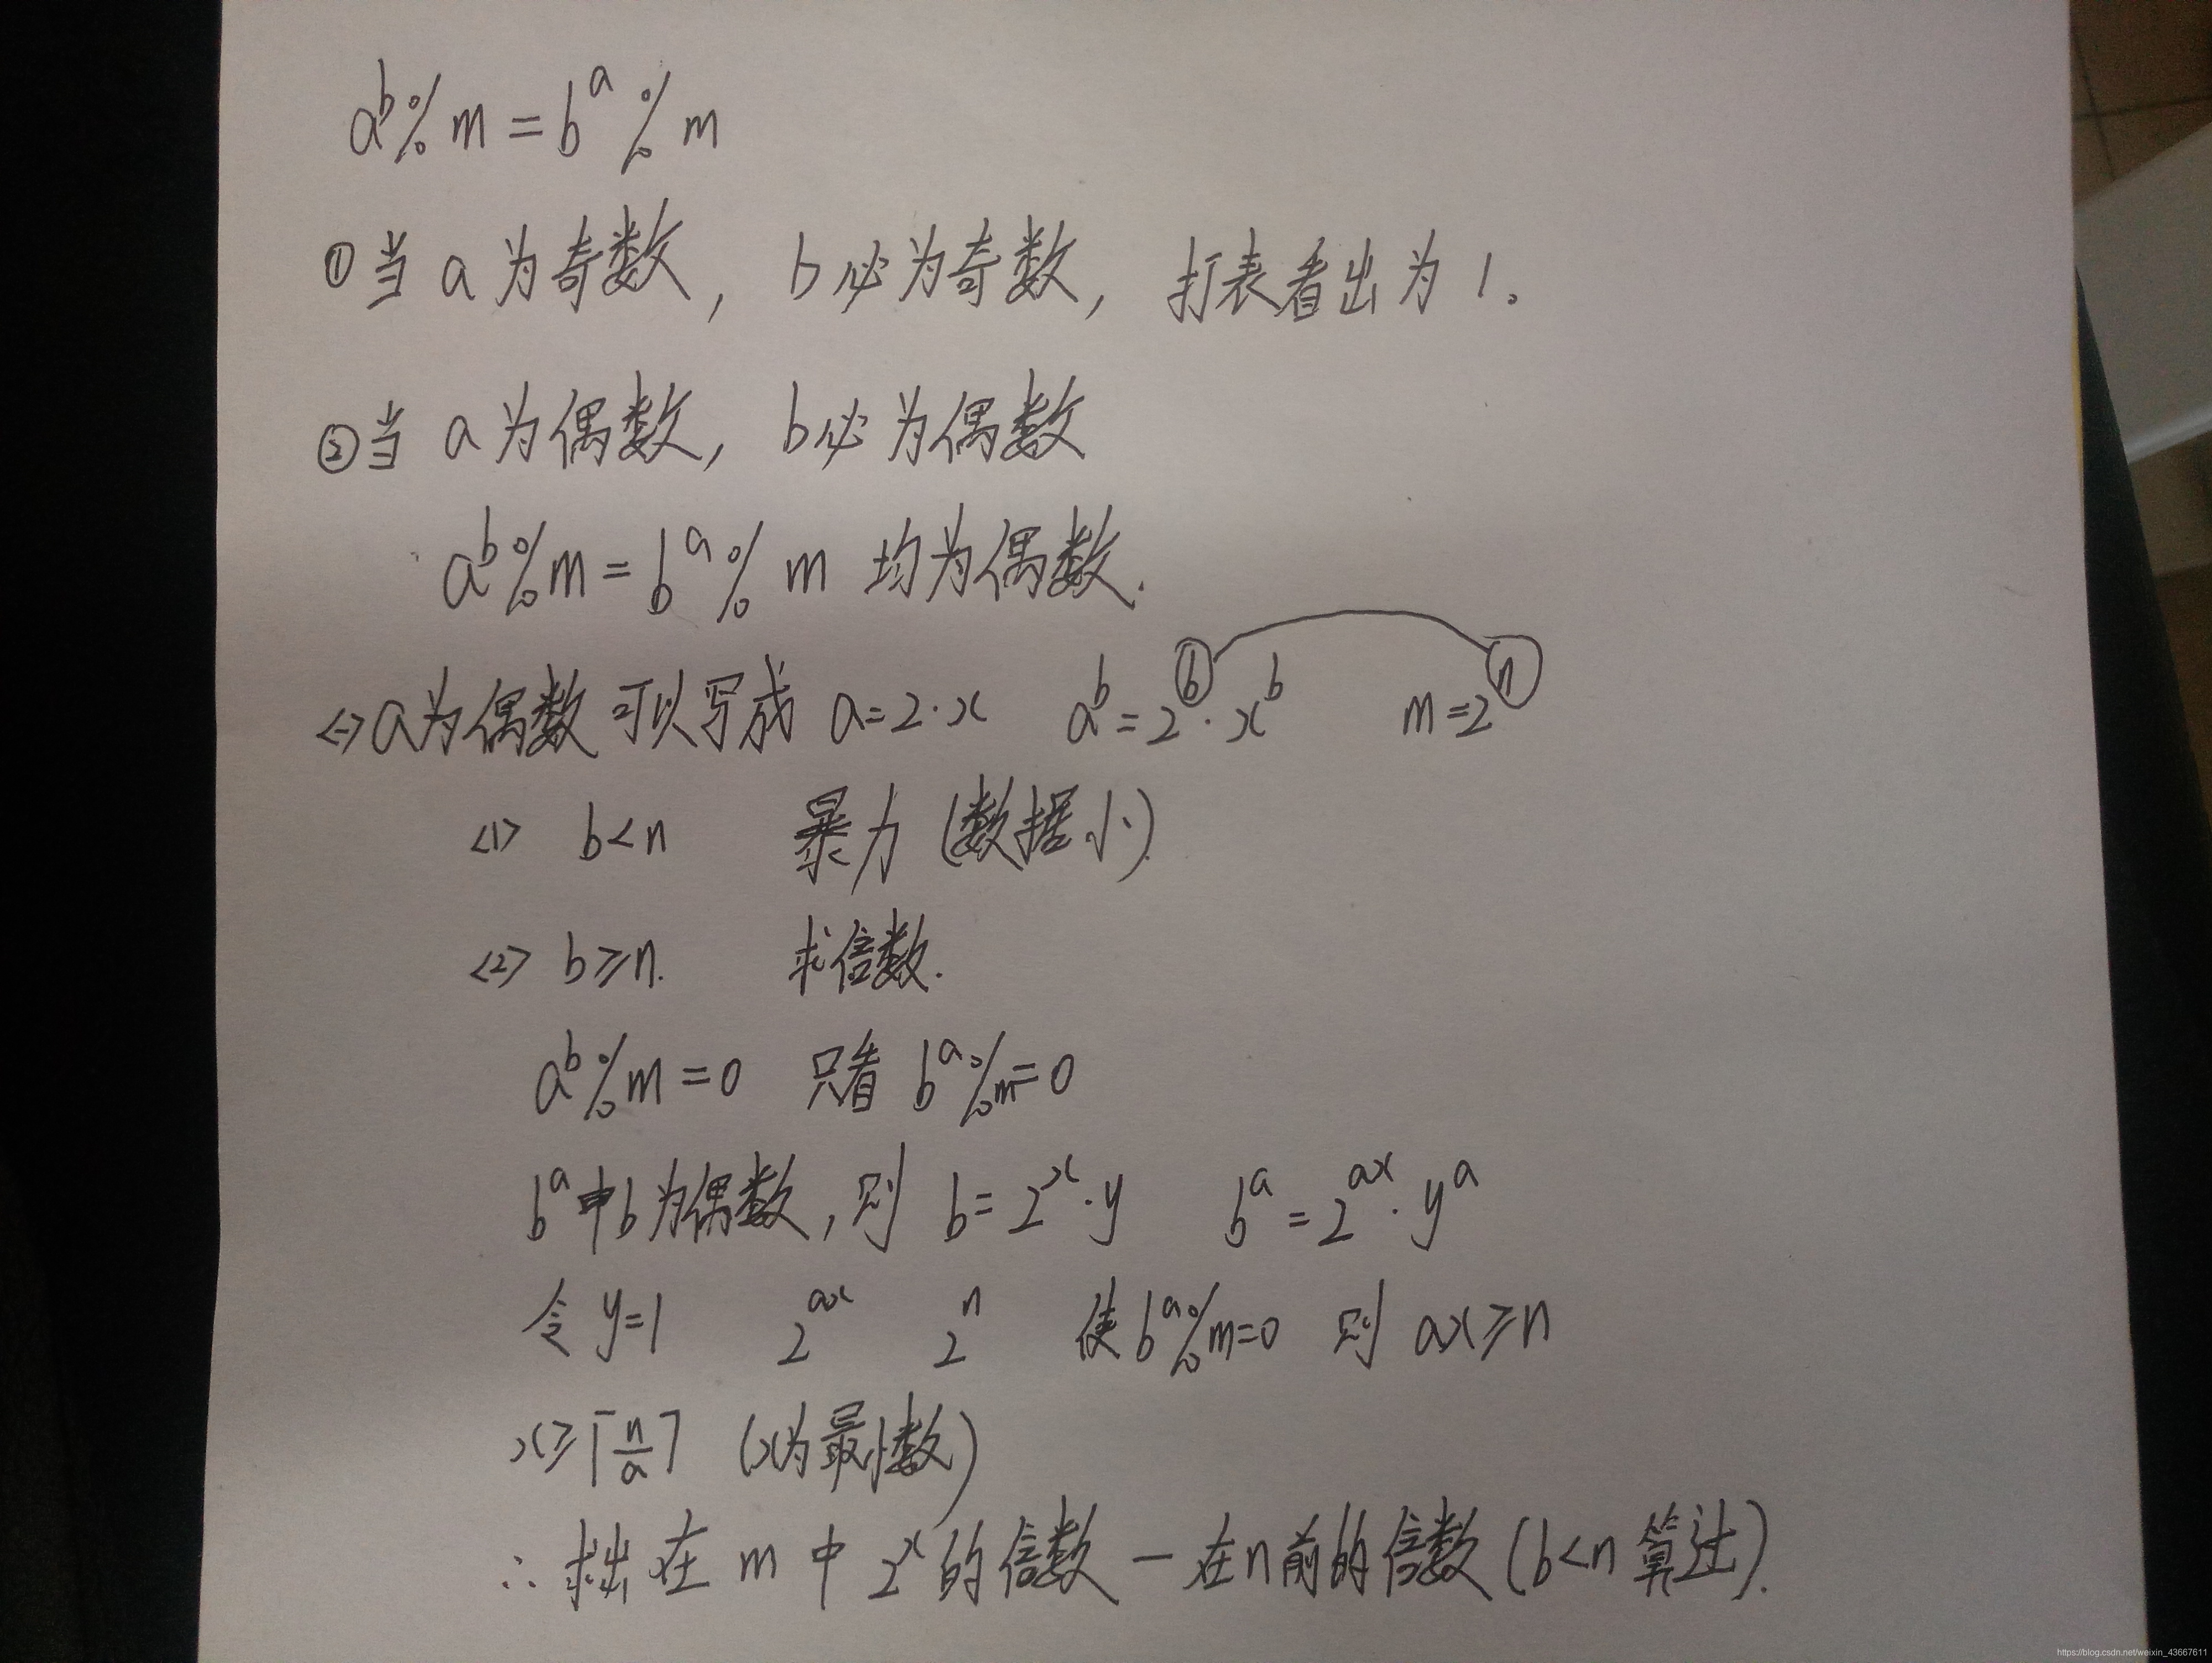 a^b % m = b^a % m
①当 a为奇数, b必为奇数, 打表看出为 1。
②当 a为偶数, b必为偶数
a^b % m = b^a % m 均为偶数.
<一>a为偶数 可以写成 a=2·x a^b = 2^b · x^b m = 2^n
<1> b<n 暴力 (数据小).
<2> b≥n. 求倍数.
a^b % m = 0 只看 b^a % m = 0
b^a 中b为偶数, 则 b = 2^x · y b^a = 2^ax · y^a
令 y=1 2^ax 2^n 使 b^a % m = 0 则 ax≥n
x≥⌈n/a⌉ (x为最小数)
∴ 求出在 m 中 2^x 的倍数 — 在n前的倍数 (b<n 算过).
https://blog.csdn.net/weixin_43667611